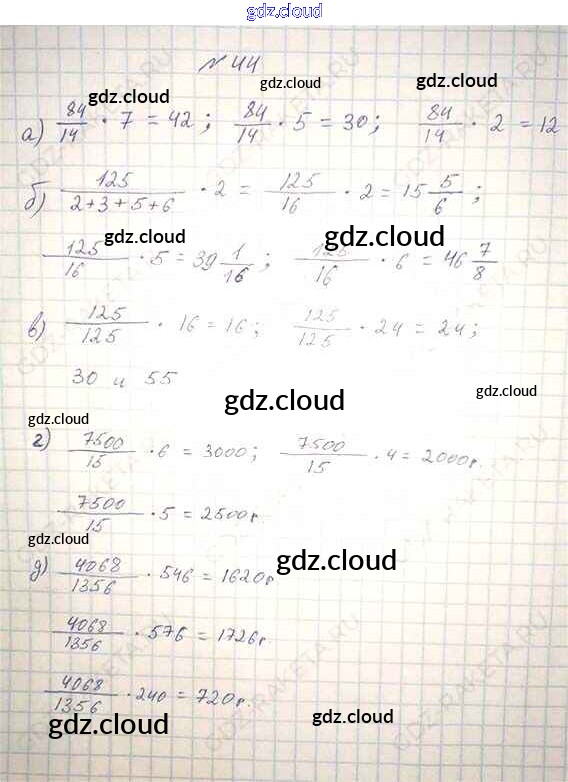 gdz.cloud
№ 44
gdz.cloud gdz.cloud gdz.cloud
а) 84/14 · 7 = 42; 84/14 · 5 = 30; 84/14 · 2 = 12
gdz.cloud
б) 125/(2+3+5+6) · 2 = 125/16 · 2 = 15 5/6;
gdz.cloud gdz.cloud
125/16 · 5 = 39 1/16; 125/16 · 6 = 46 7/8
в) 125/125 · 16 = 16; 125/125 · 24 = 24;
30 и 55
gdz.cloud gdz.cloud
gdz.cloud
г) 7500/15 · 6 = 3000; 7500/15 · 4 = 2000р.
7500/15 · 5 = 2500р.
gdz.cloud gdz.cloud
д) 4068/1356 · 546 = 1620р
4068/1356 · 576 = 1726р
gdz.cloud
4068/1356 · 240 = 720р.
gdz.cloud gdz.cloud